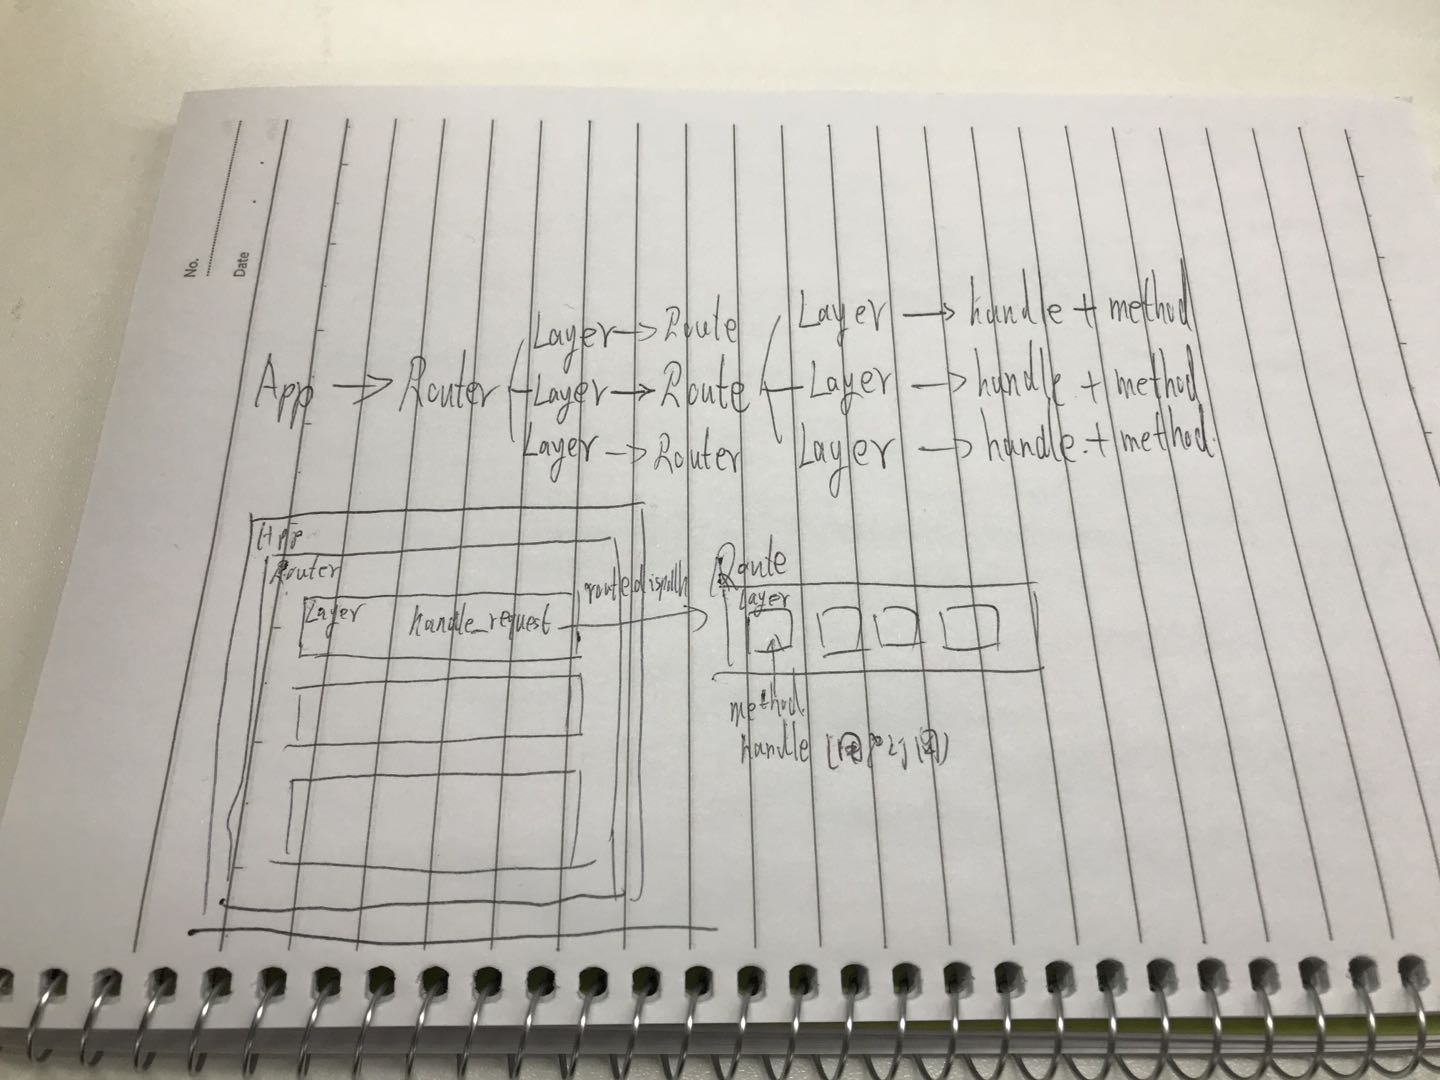 No.
Date
Layer → Route Layer → handle + method
App → Router Layer → Route Layer → handle + method
Layer → Router Layer → handle + method
App
Router
Layer handle_request
route dispath
Route
layer
method
handle